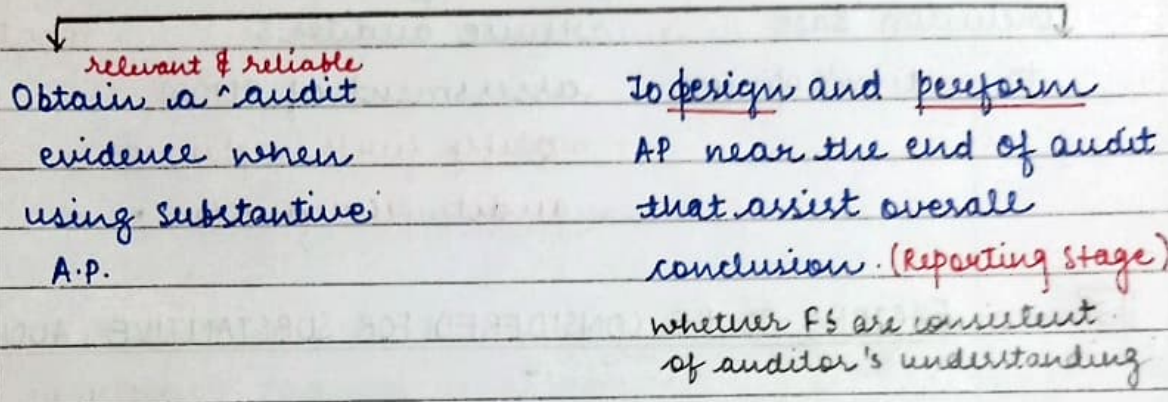 relevant & reliable
Obtain a ^ audit
evidence when
using substantive
A.P.
To design and perform
AP near the end of audit
that assist overall
conclusion. (Reporting Stage)
whether FS are consistent
of auditor's understanding
CONSIDERED FOR SUBSTANTIVE AUD